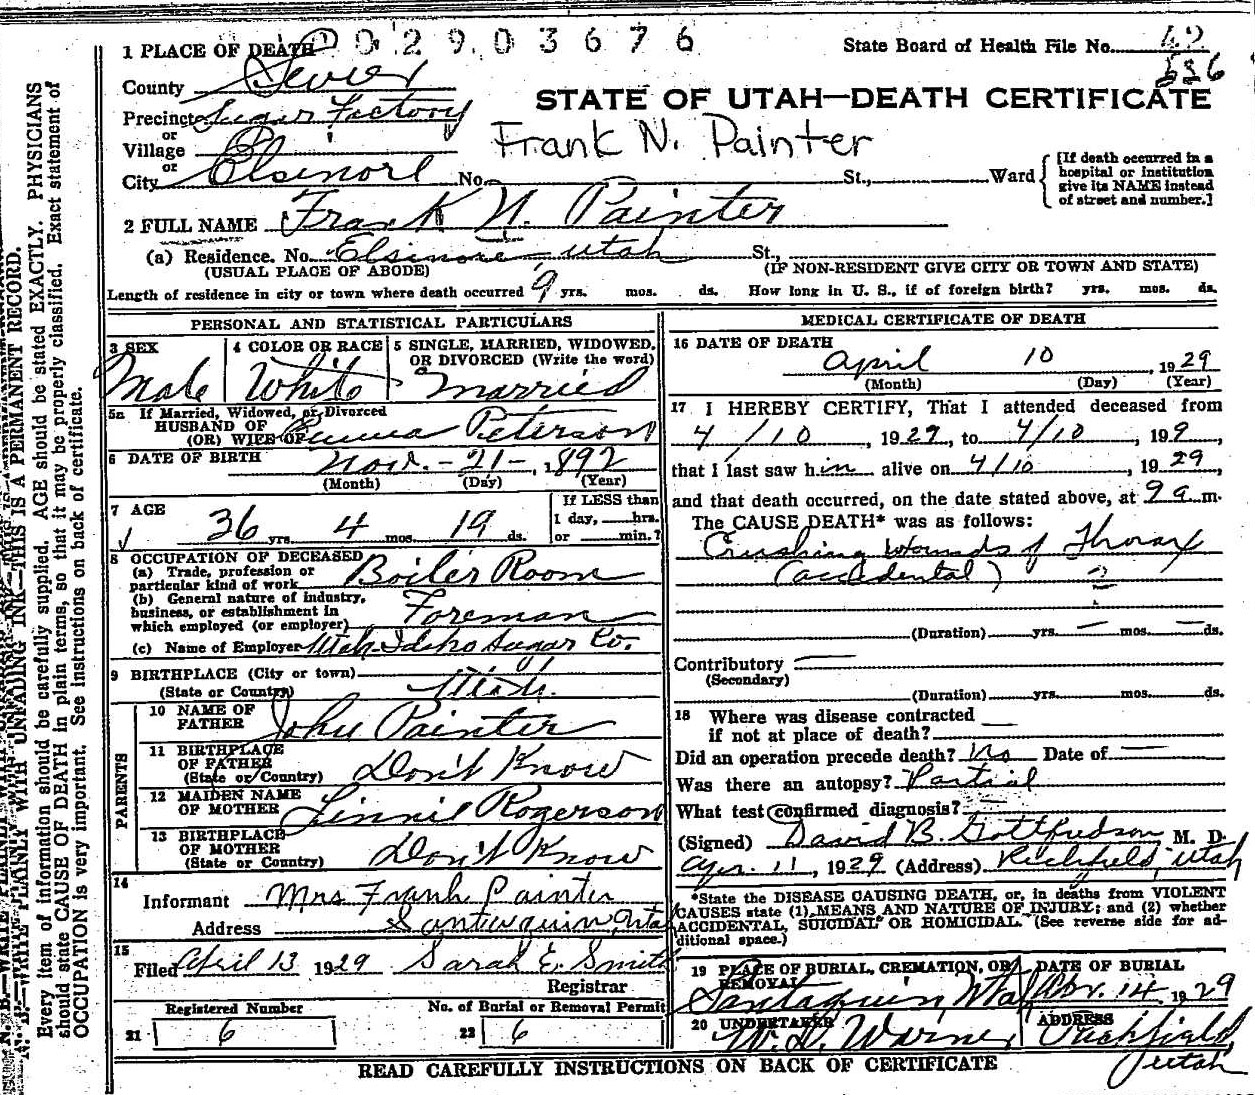 0 0 2 9 0 3 6 7 6
1 PLACE OF DEATH
State Board of Health File No. 42
536
County Sevier
STATE OF UTAH—DEATH CERTIFICATE
Precinct Sugar Factory
or
Village
Frank N. Painter
or
City Elsinore No. St., Ward
[If death occurred in a
hospital or institution
give its NAME instead
of street and number.]
2 FULL NAME Frank N. Painter
(a) Residence. No. Elsinore, Utah St.,
(USUAL PLACE OF ABODE) (IF NON-RESIDENT GIVE CITY OR TOWN AND STATE)
Length of residence in city or town where death occurred 9 yrs. mos. ds. How long in U. S., if of foreign birth? yrs. mos. ds.
PERSONAL AND STATISTICAL PARTICULARS
3 SEX 4 COLOR OR RACE 5 SINGLE, MARRIED, WIDOWED,
OR DIVORCED (Write the word)
Male White Married
5a If Married, Widowed, or Divorced
HUSBAND OF
(OR) WIFE OF Emma Peterson
6 DATE OF BIRTH Nov. - 21 - , 1892
(Month) (Day) (Year)
7 AGE If LESS than
1 day, hrs.
or min.?
36 yrs. 4 mos. 19 ds.
8 OCCUPATION OF DECEASED
(a) Trade, profession or
particular kind of work Boiler Room
(b) General nature of industry,
business, or establishment in
which employed (or employer) Foreman
(c) Name of Employer Utah Idaho Sugar Co.
9 BIRTHPLACE (City or town)
(State or Country) Utah.
PARENTS
10 NAME OF
FATHER John Painter
11 BIRTHPLACE
OF FATHER
(State or Country) Don't Know
12 MAIDEN NAME
OF MOTHER Linnie Rogerson
13 BIRTHPLACE
OF MOTHER
(State or Country) Don't Know
14
Informant Mrs Frank Painter
Address Santaquin, Utah
15
Filed April 13 1929 Sarah E. Smith
Registrar
Registered Number No. of Burial or Removal Permit
21 6 22 6
MEDICAL CERTIFICATE OF DEATH
16 DATE OF DEATH
April 10 , 1929
(Month) (Day) (Year)
17 I HEREBY CERTIFY, That I attended deceased from
4/10 , 1929, to 4/10 , 199,
that I last saw him alive on 4/10 , 1929,
and that death occurred, on the date stated above, at 9 a m.
The CAUSE DEATH* was as follows:
Crushing Wounds of Thorax
(accidental)
(Duration) yrs. — mos. — ds.
Contributory —
(Secondary)
(Duration) yrs. mos. ds.
18 Where was disease contracted —
if not at place of death?
Did an operation precede death? No Date of —
Was there an autopsy? Partial
What test confirmed diagnosis?
(Signed) David B. Gottfredson M. D.
Apr. 11, 1929 (Address) Richfield, Utah
*State the DISEASE CAUSING DEATH, or, in deaths from VIOLENT
CAUSES state (1) MEANS AND NATURE OF INJURY; and (2) whether
ACCIDENTAL, SUICIDAL OR HOMICIDAL. (See reverse side for ad-
ditional space.)
19 PLACE OF BURIAL, CREMATION, OR REMOVAL DATE OF BURIAL
Santaquin, Utah Apr. 14 1929
20 UNDERTAKER ADDRESS
Richfield,
Utah
READ CAREFULLY INSTRUCTIONS ON BACK OF CERTIFICATE
N. B.—WRITE PLAINLY WITH UNFADING INK—THIS IS A PERMANENT RECORD.
Every item of information should be carefully supplied. AGE should be stated EXACTLY. PHYSICIANS
should state CAUSE OF DEATH in plain terms, so that it may be properly classified. Exact statement of
OCCUPATION is very important. See instructions on back of certificate.